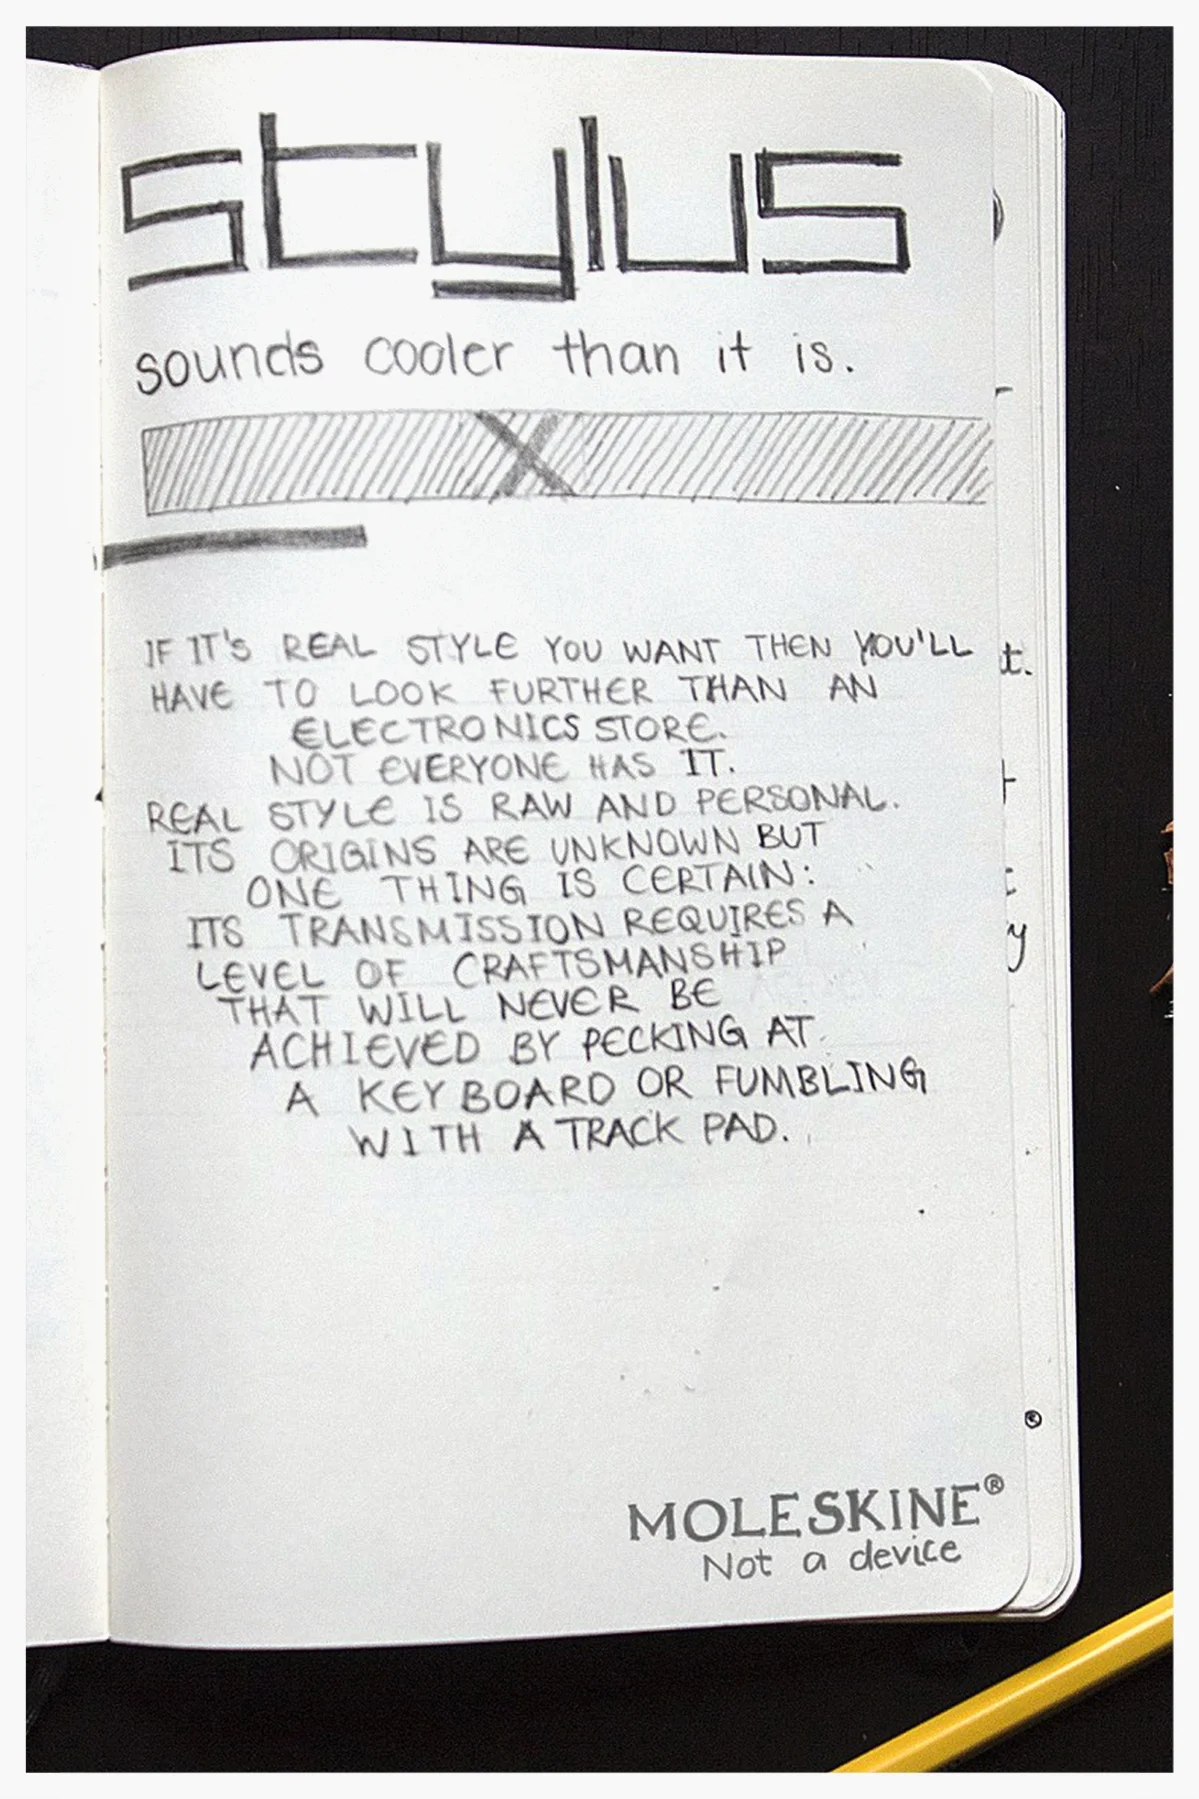 stylus
sounds cooler than it is.
X
IF IT'S REAL STYLE YOU WANT THEN YOU'LL
HAVE TO LOOK FURTHER THAN AN
ELECTRONICS STORE.
NOT EVERYONE HAS IT.
REAL STYLE IS RAW AND PERSONAL.
ITS ORIGINS ARE UNKNOWN BUT
ONE THING IS CERTAIN:
ITS TRANSMISSION REQUIRES A
LEVEL OF CRAFTSMANSHIP
THAT WILL NEVER BE
ACHIEVED BY PECKING AT
A KEYBOARD OR FUMBLING
WITH A TRACK PAD.
MOLESKINE®
Not a device
®